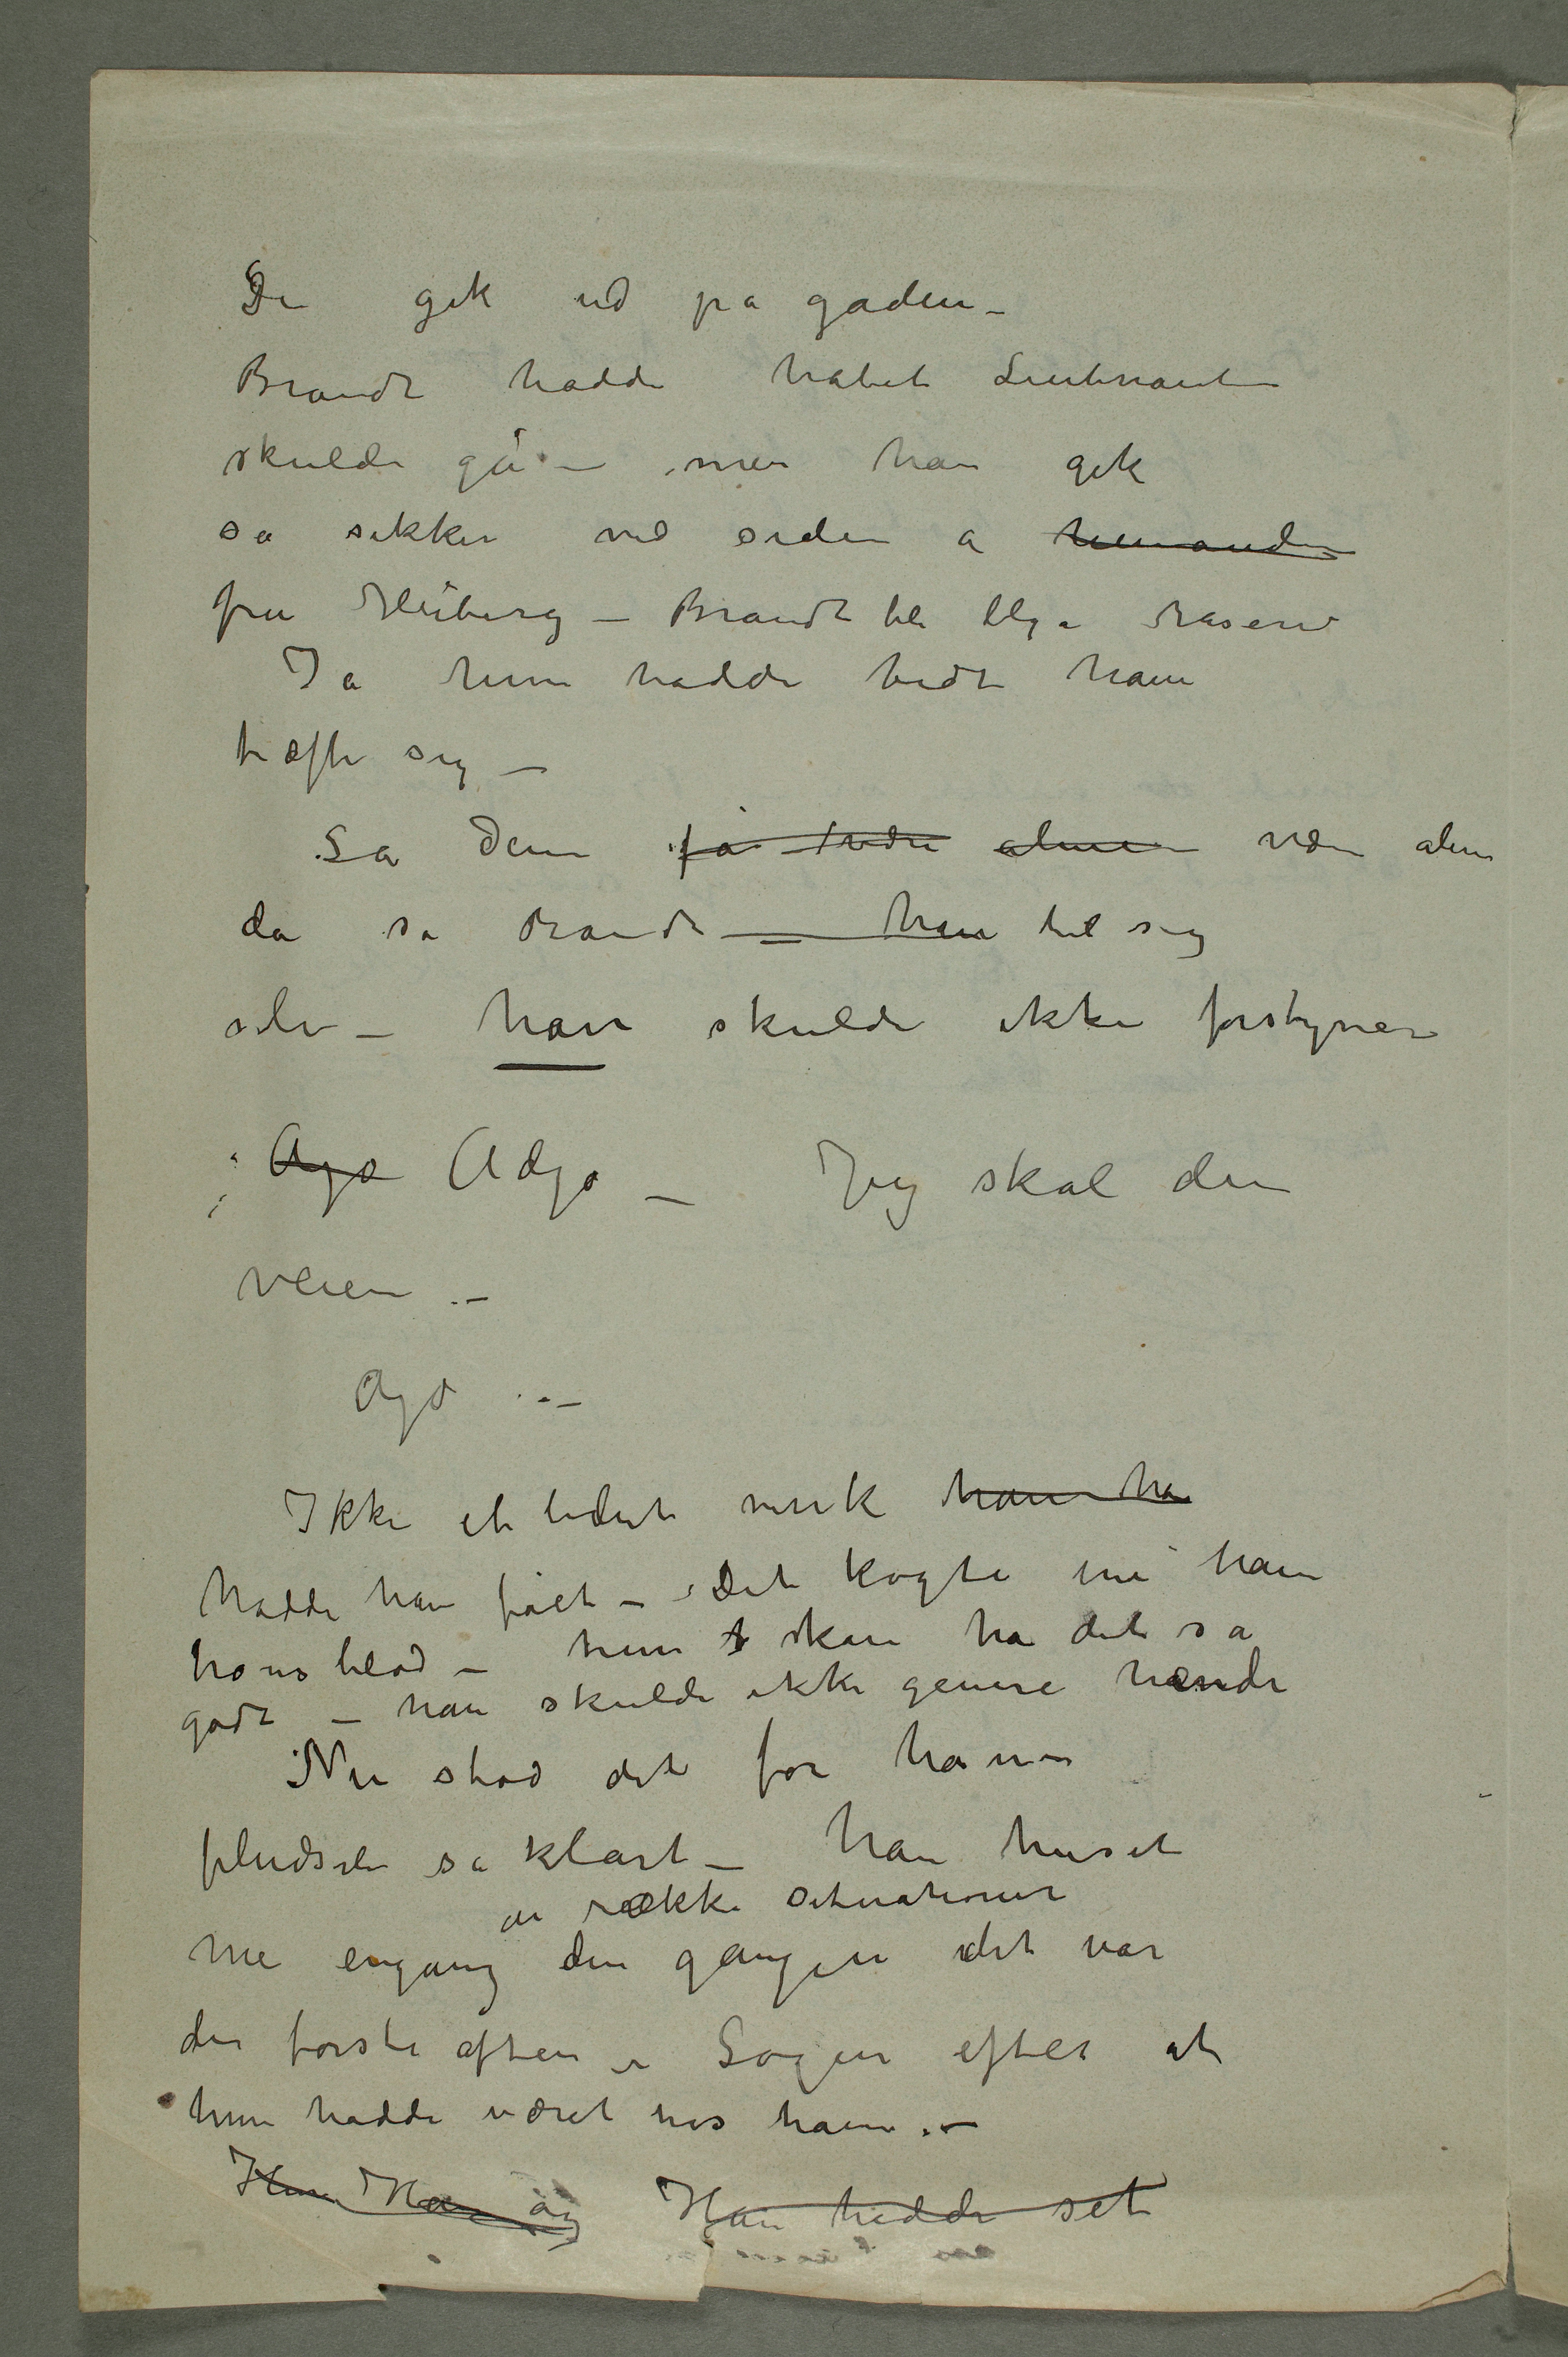 De gik ud på gaden –
Brandt hadde håbet Lieutnanten
skulde gå – men han gik
så sikker ved siden a hverandre
fru Heiberg – Brandt ble lige rasene
Ja hun hadde bedt ham
træffe sig –
Så dem få være alene være alene
da sa Brandt – han til sig
selv – han skulde ikke forstyrre
Ajø Adjø – Jeg skal den
veien –
Ajø –
Ikke et eneste vink han ha
hadde han fået – Det kogte ini ham
hans blod – hun s skan ha det så
godt – han skulde ikke genere hænde
Nu stod det for ham
pludseli så klart – han huset
en række situationer
me engang den gangen det var
den første aften i Sogen efter at
hun hadde været hos ham. –
Hun Han og Han hadde set